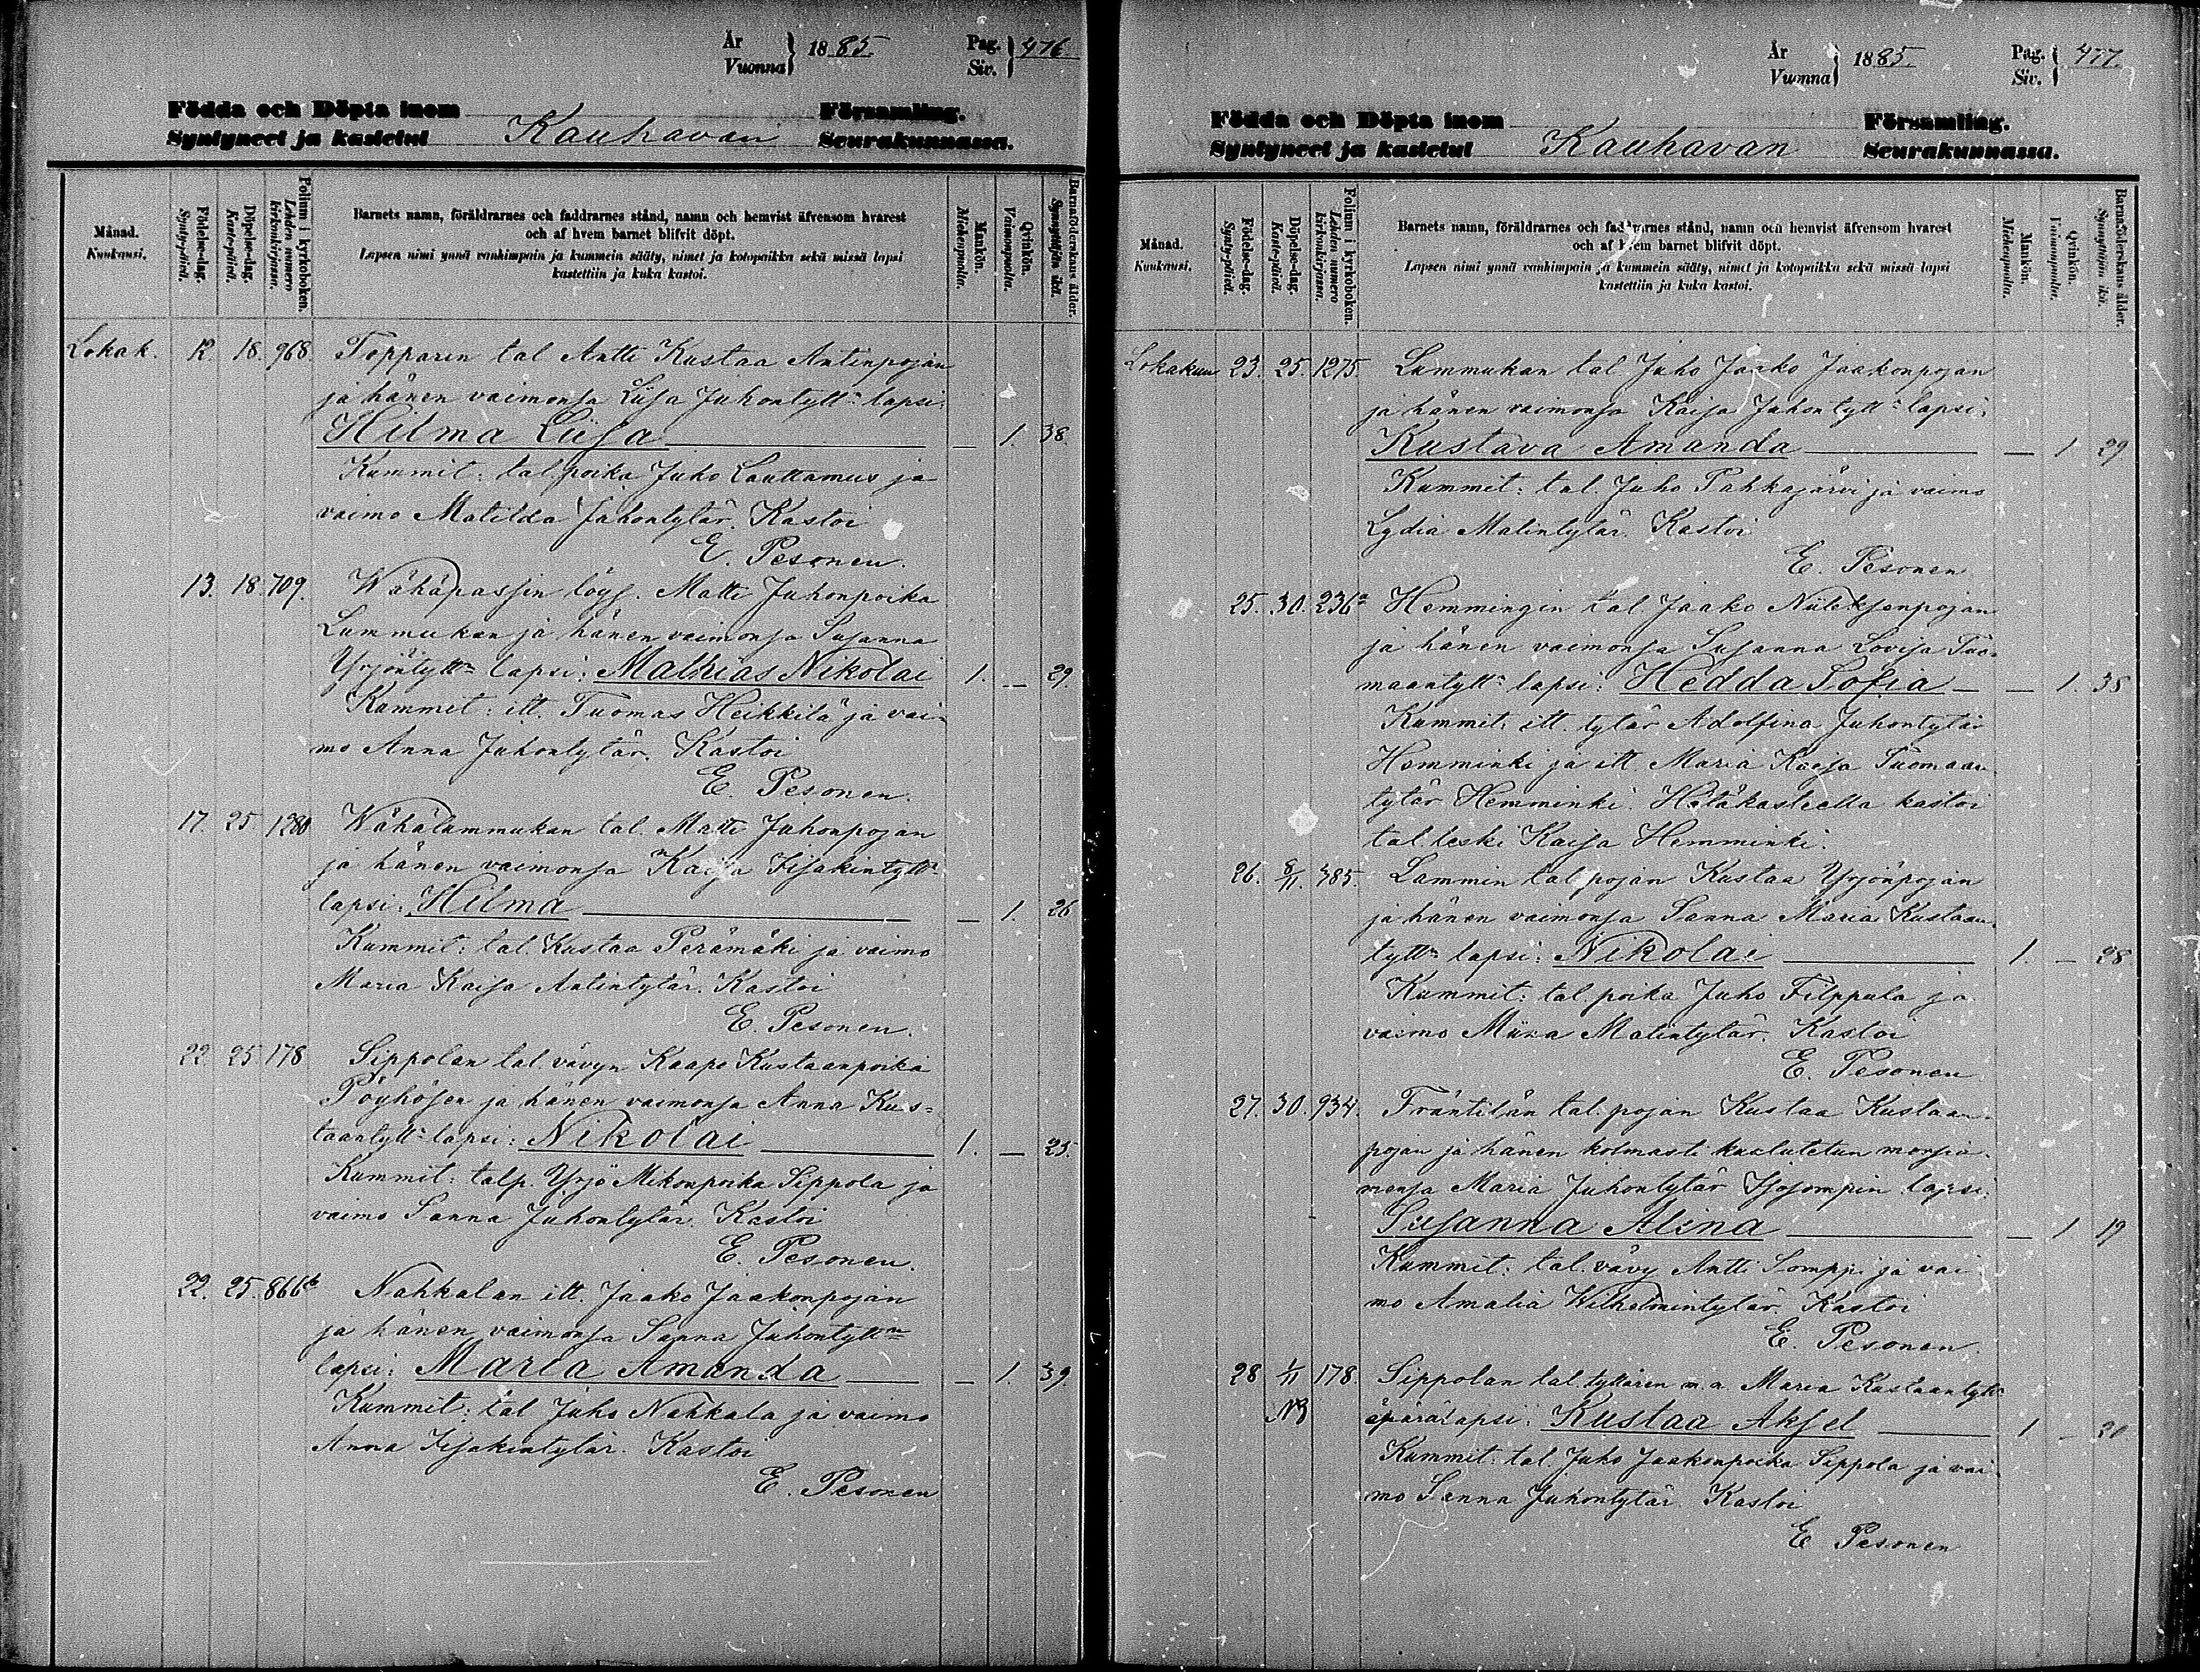 År
Vuonna } 1885.
Pag.
Siv. } 476
Födda och Döpta inom Församling.
Syntyneet ja kastetut Kauhavan Seurakunnassa.
Månad.
Kuukausi.
Födelse-dag.
Synty-päivä.
Döpelse-dag.
Kaste-päivä.
Folium i kyrkoboken.
Lehden numero kirkonkirjassa.
Barnets namn, föräldrarnes och faddrarnes stånd, namn och hemvist äfvensom hvarest
och af hvem barnet blifvit döpt.
Lapsen nimi ynnä vanhimpain ja kummein sääty, nimet ja kotopaikka sekä missä lapsi
kastettiin ja kuka kastoi.
Mankön.
Miehenpuolta.
Qvinkön.
Vaimonpuolta.
Barnaföderskans ålder.
Synnyttäjän ikä.
Lokak. 12 18. 968. Topparin tal Antti Kustaa Antinpojan
ja hänen vaimonsa Liisa Juhontytt:n lapsi:
Hilma Liisa — 1. 38.
Kummit: tal. poika Juho Lauttamus ja
vaimo Matilda Juhontytär. Kastoi
E. Pesonen.
13. 18. 709. Wähäpassin löys. Matti Juhonpoika
Lummukan ja hänen vaimonsa Susanna
Yrjöntytt:n lapsi: Mathias Nikolai 1. — 29.
Kummit: itt. Tuomas Heikkilä ja vai-
mo Anna Juhontytär. Kastoi
E. Pesonen.
17. 25. 1280 Wähälummukan tal. Matti Juhonpojan
ja hänen vaimonsa Kaisa Iisakintytt:n
lapsi: Hilma — 1. 26
Kummit: tal. Kustaa Perämäki ja vaimo
Maria Kaisa Antintytär. Kastoi
E. Pesonen.
22. 25. 178 Sippolan tal. vävyn Kaapo Kustaanpoika
Pöyhösen ja hänen vaimonsa Anna Kus=
taantytt:n lapsi: Nikolai 1. — 25.
Kummit: talp. Yrjö Mikonpoika Sippola ja
vaimo Sanna Juhontytär. Kastoi
E. Pesonen.
22. 25. 866b Nahkalan itt. Jaako Jaakonpojan
ja hänen vaimonsa Sanna Juhontytt:n
lapsi: Maria Amanda — 1. 39.
Kummit: tal Juho Nahkala ja vaimo
Anna Iisakintytär. Kastoi
E. Pesonen
År
Vuonna } 1885.
Pag.
Siv. } 477.
Födda och Döpta inom Församling.
Syntyneet ja kastetut Kauhavan Seurakunnassa.
Månad.
Kuukausi.
Födelse-dag.
Synty-päivä.
Döpelse-dag.
Kaste-päivä.
Folium i kyrkoboken.
Lehden numero kirkonkirjassa.
Barnets namn, föräldrarnes och faddrarnes stånd, namn och hemvist äfvensom hvarest
och af hvem barnet blifvit döpt.
Lapsen nimi ynnä vanhimpain ja kummein sääty, nimet ja kotopaikka sekä missä lapsi
kastettiin ja kuka kastoi.
Mankön.
Miehenpuolta.
Qvinkön.
Vaimonpuolta.
Barnaföderskans ålder.
Synnyttäjän ikä.
Lokakuu 23. 25. 1275 Lummukan tal Juho Jaako Jaakonpojan
ja hänen vaimonsa Kaisa Juhontytt:n lapsi:
Kustava Amanda — 1 29
Kummit: tal. Juho Pahkajärvi ja vaimo
Lydia Matintytär. Kastoi
E. Pesonen
25. 30. 236a Hemmingin tal Jaako Niileksenpojan
ja hänen vaimonsa Susanna Lovisa Tuo-
maantytt:n lapsi: Hedda Sofia — 1. 38
Kummit: itt. tytär Adolfina Juhontytär
Hemminki ja itt. Maria Kaisa Tuomaan-
tytär Hemminki. Hätäkasteella kastoi
tal. leski Kaisa Hemminki.
26. 8/11. 485. Lammin tal. pojan Kustaa Yrjönpojan
ja hänen vaimonsa Sanna Maria Kustaan-
tytt:n lapsi: Nikolai 1. — 28
Kummit: tal. poika Juho Filppula ja
vaimo Miina Matintytär. Kastoi
E. Pesonen
27. 30. 934. Fräntilän tal. pojan Kustaa Kustaan-
pojan ja hänen kolmasti kuulutetun morsia-
mensa Maria Juhontytär Isosompin lapsi:
Susanna Alina — 1 19
Kummit: tal. vävy Antti Somppi ja vai
mo Amalia Wilhelmintytär. Kastoi
E. Pesonen.
28 1/11 178. Sippolan tal. tyttären m. a. Maria Kustaantytt:n
NB äpärälapsi: Kustaa Aksel 1 — 20
Kummit: tal. Juho Jaakonpoika Sippola ja vai-
mo Sanna Juhontytär. Kastoi
E Pesonen